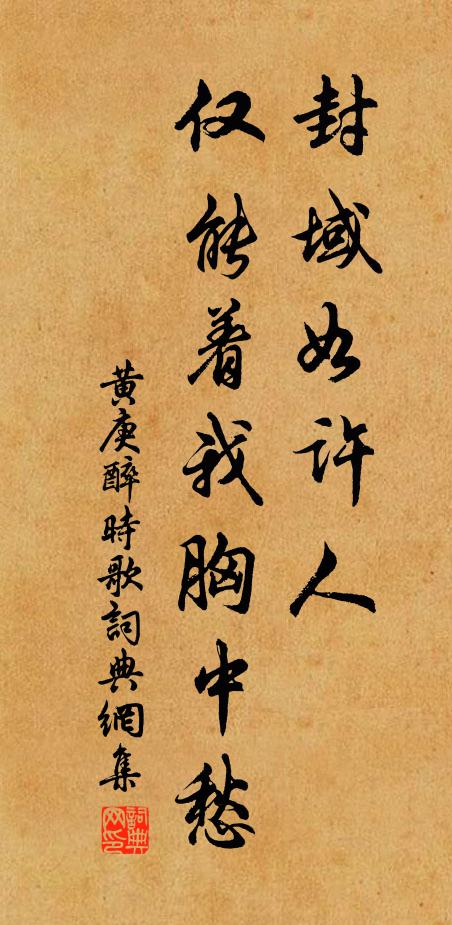 封域如许人
仅能着我胸中愁
黄庚醉時歌詞典網集
詞典
网印